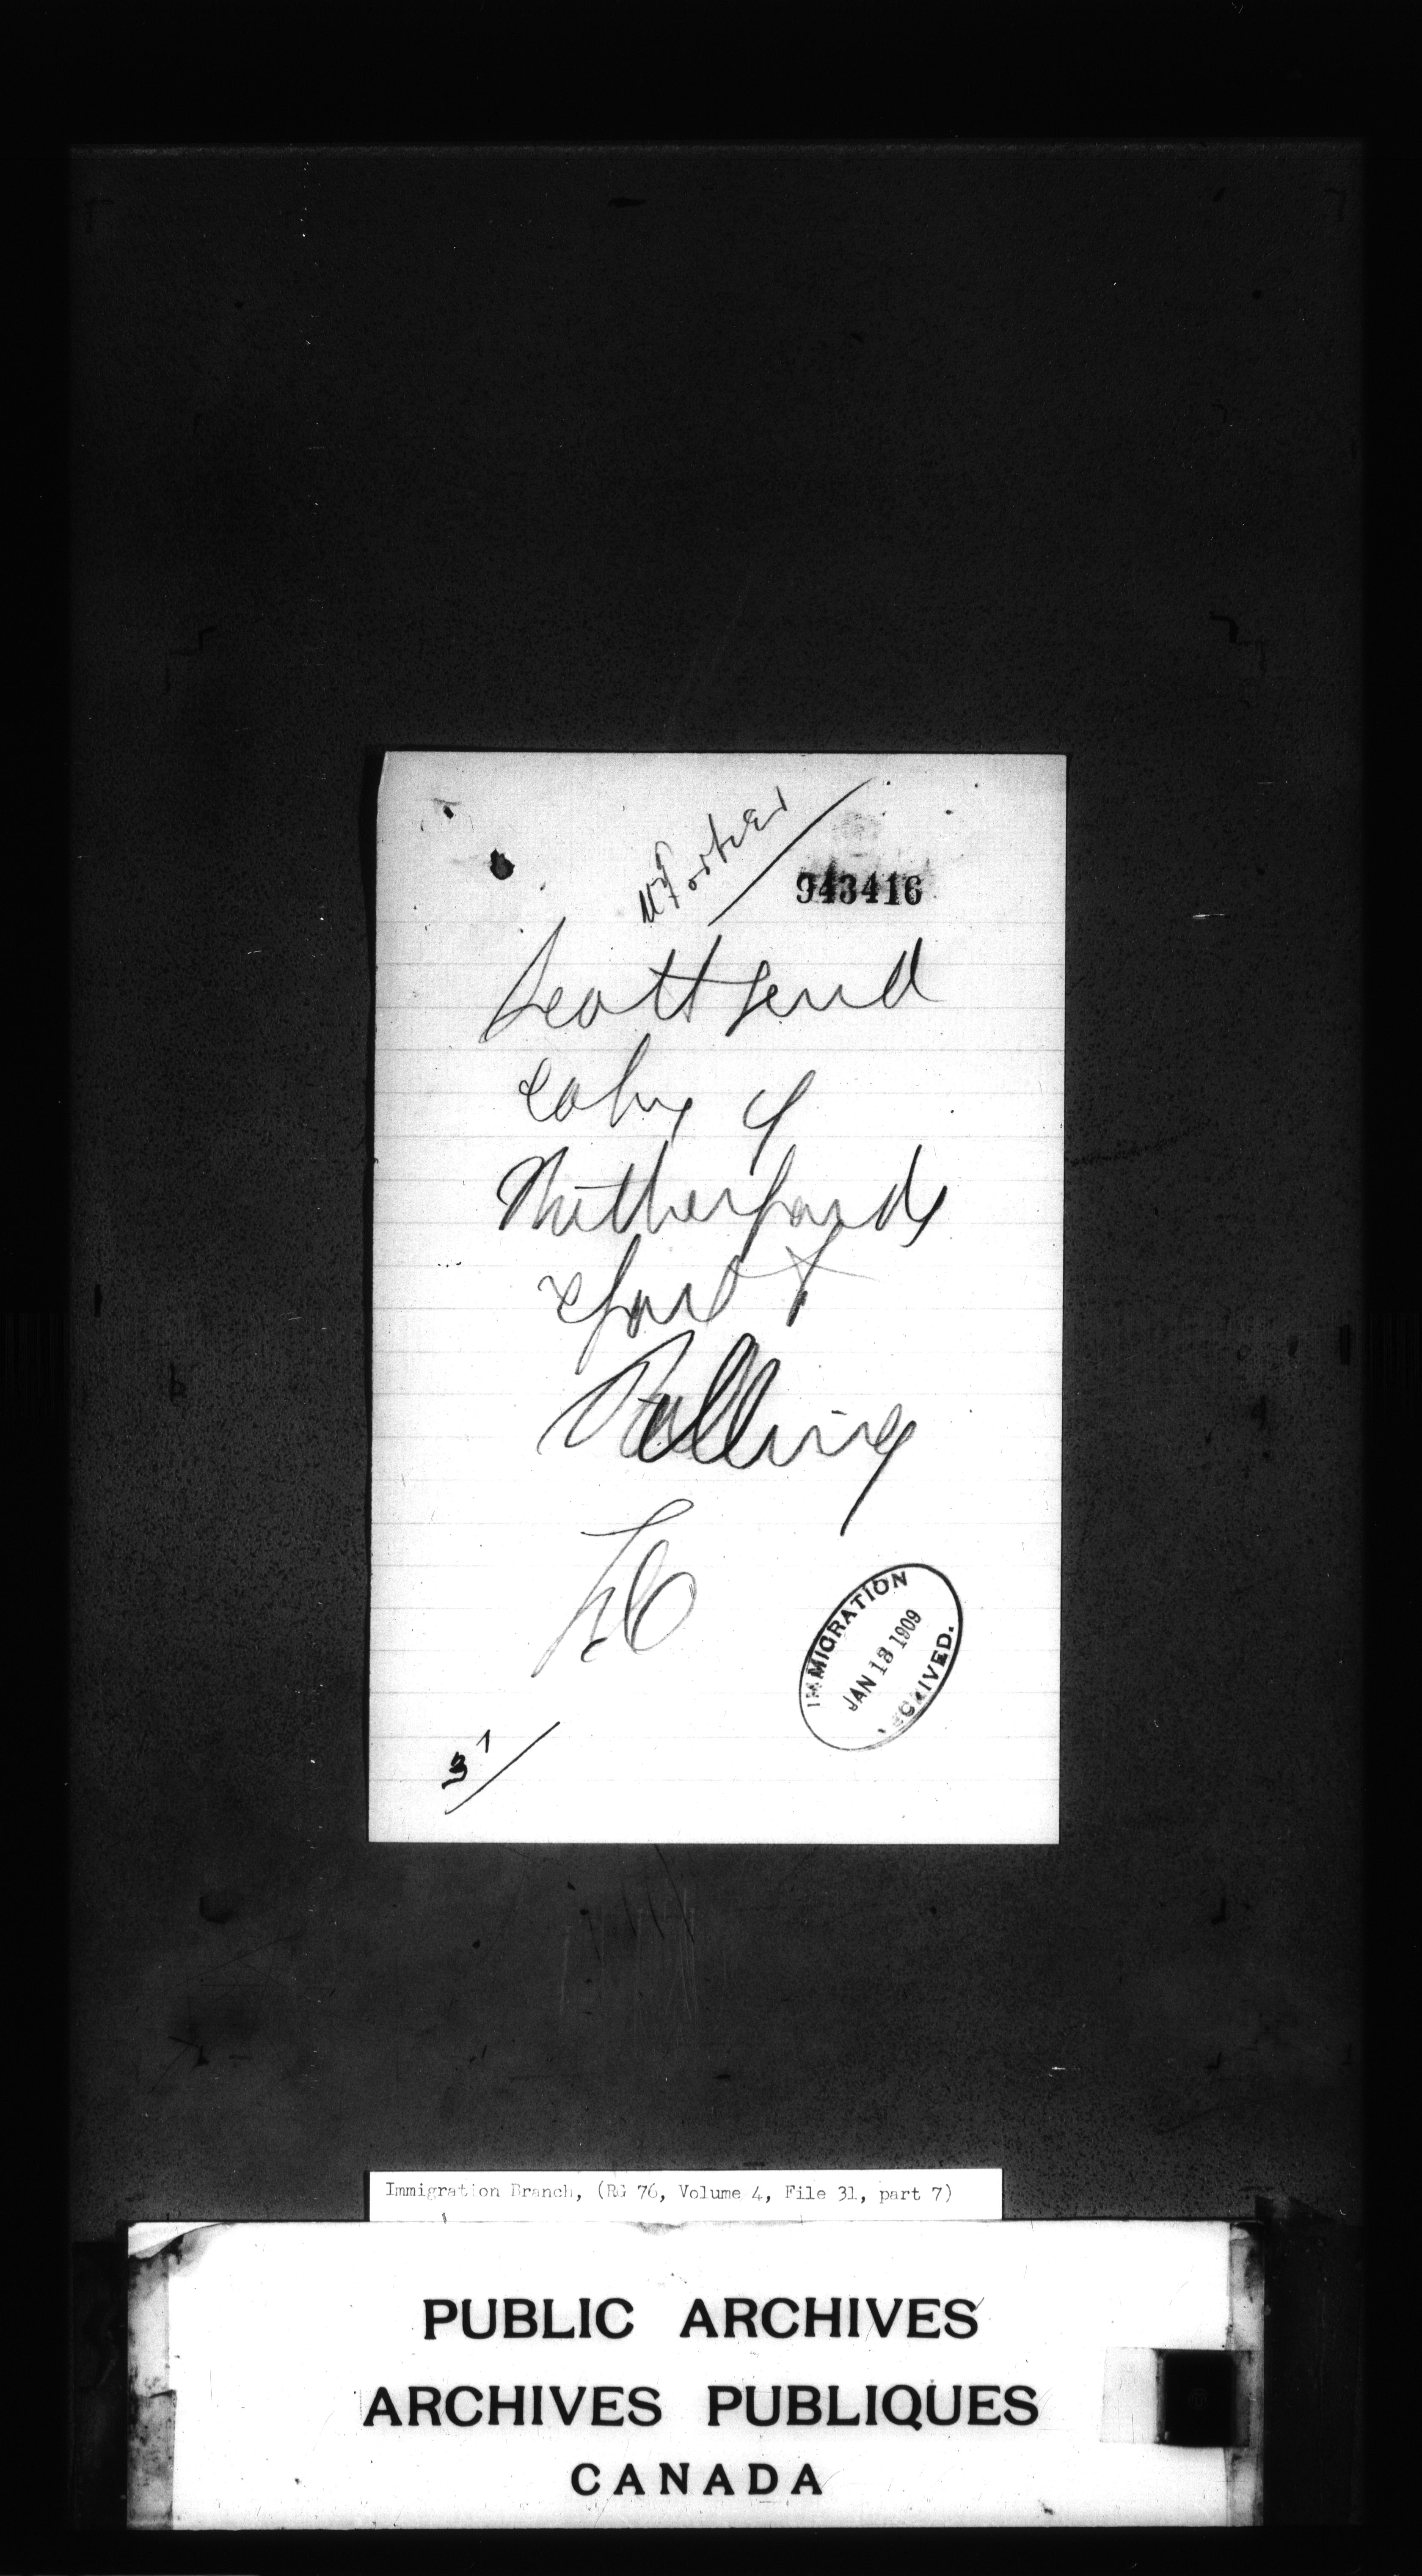 Mr Fortier
943416
Scott send
copy of
Rutherfords
report to
Pelling
31
IMMIGRATION
JAN 13 1909
RECEIVED.
Immigration Branch, (RG 76, Volume 4, File 31, part 7)
PUBLIC ARCHIVES
ARCHIVES PUBLIQUES
CANADA